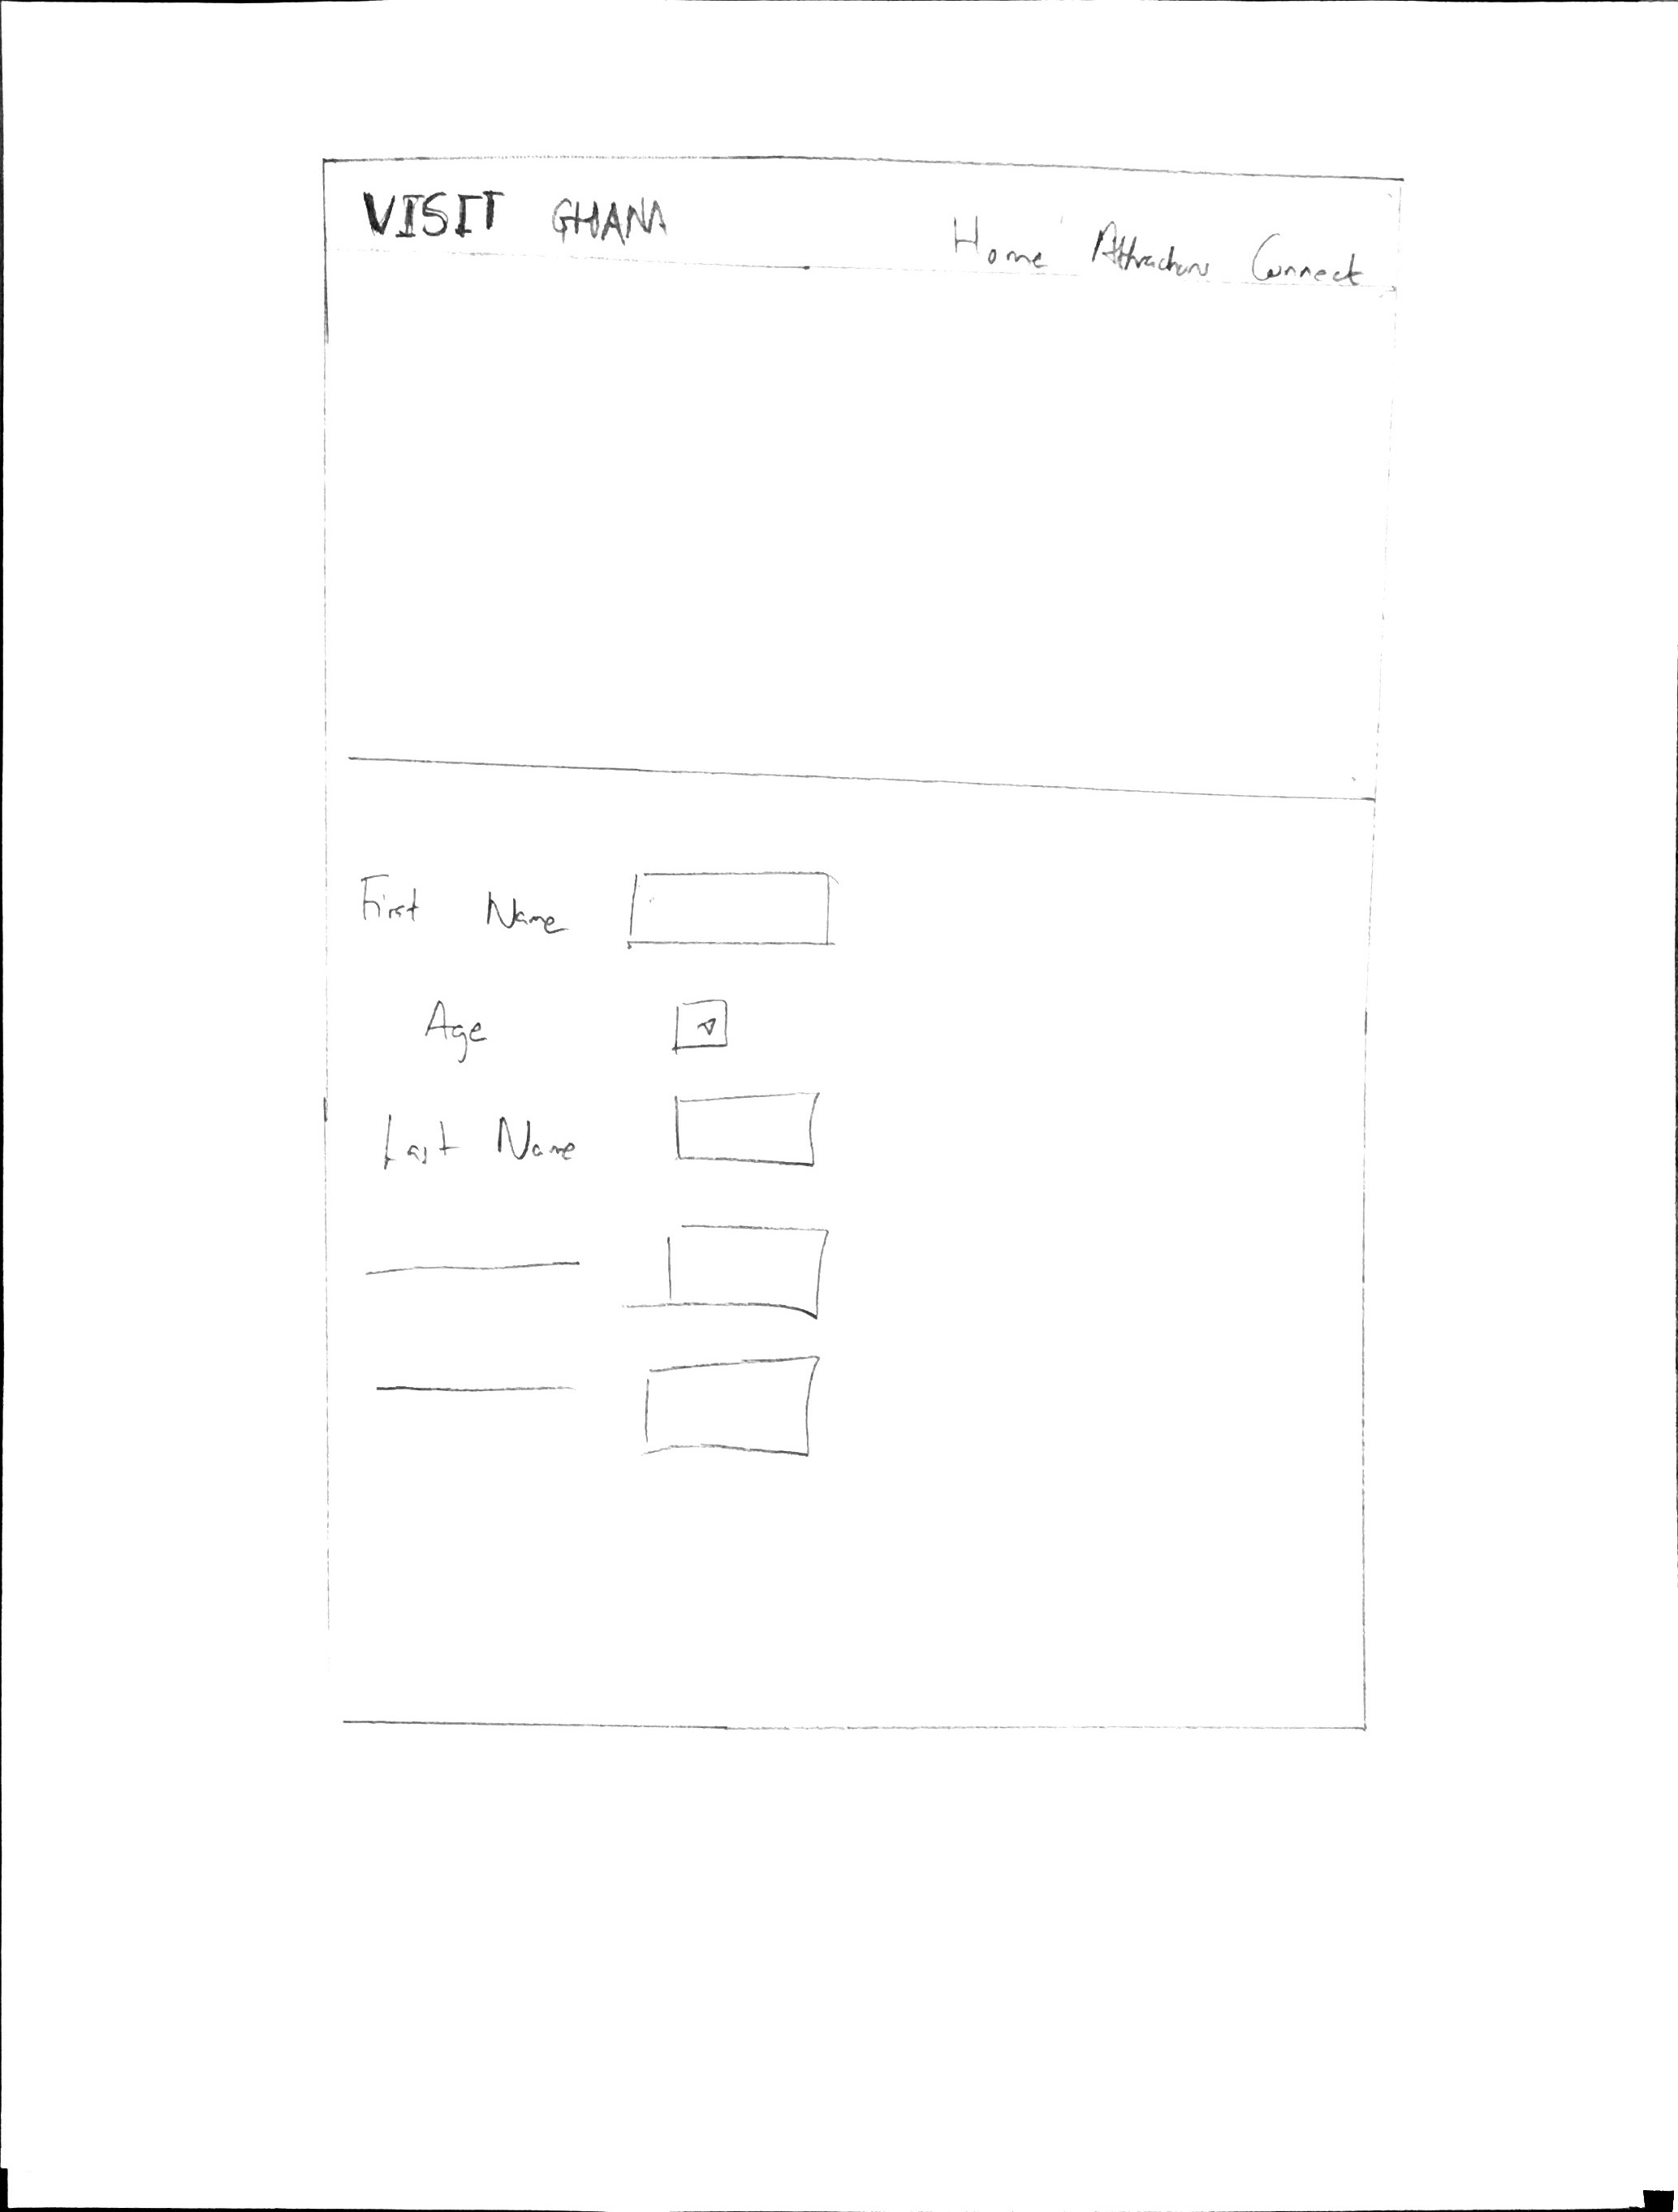 VISIT GHANA
Home Attractions Connect
First Name
Age
Last Name